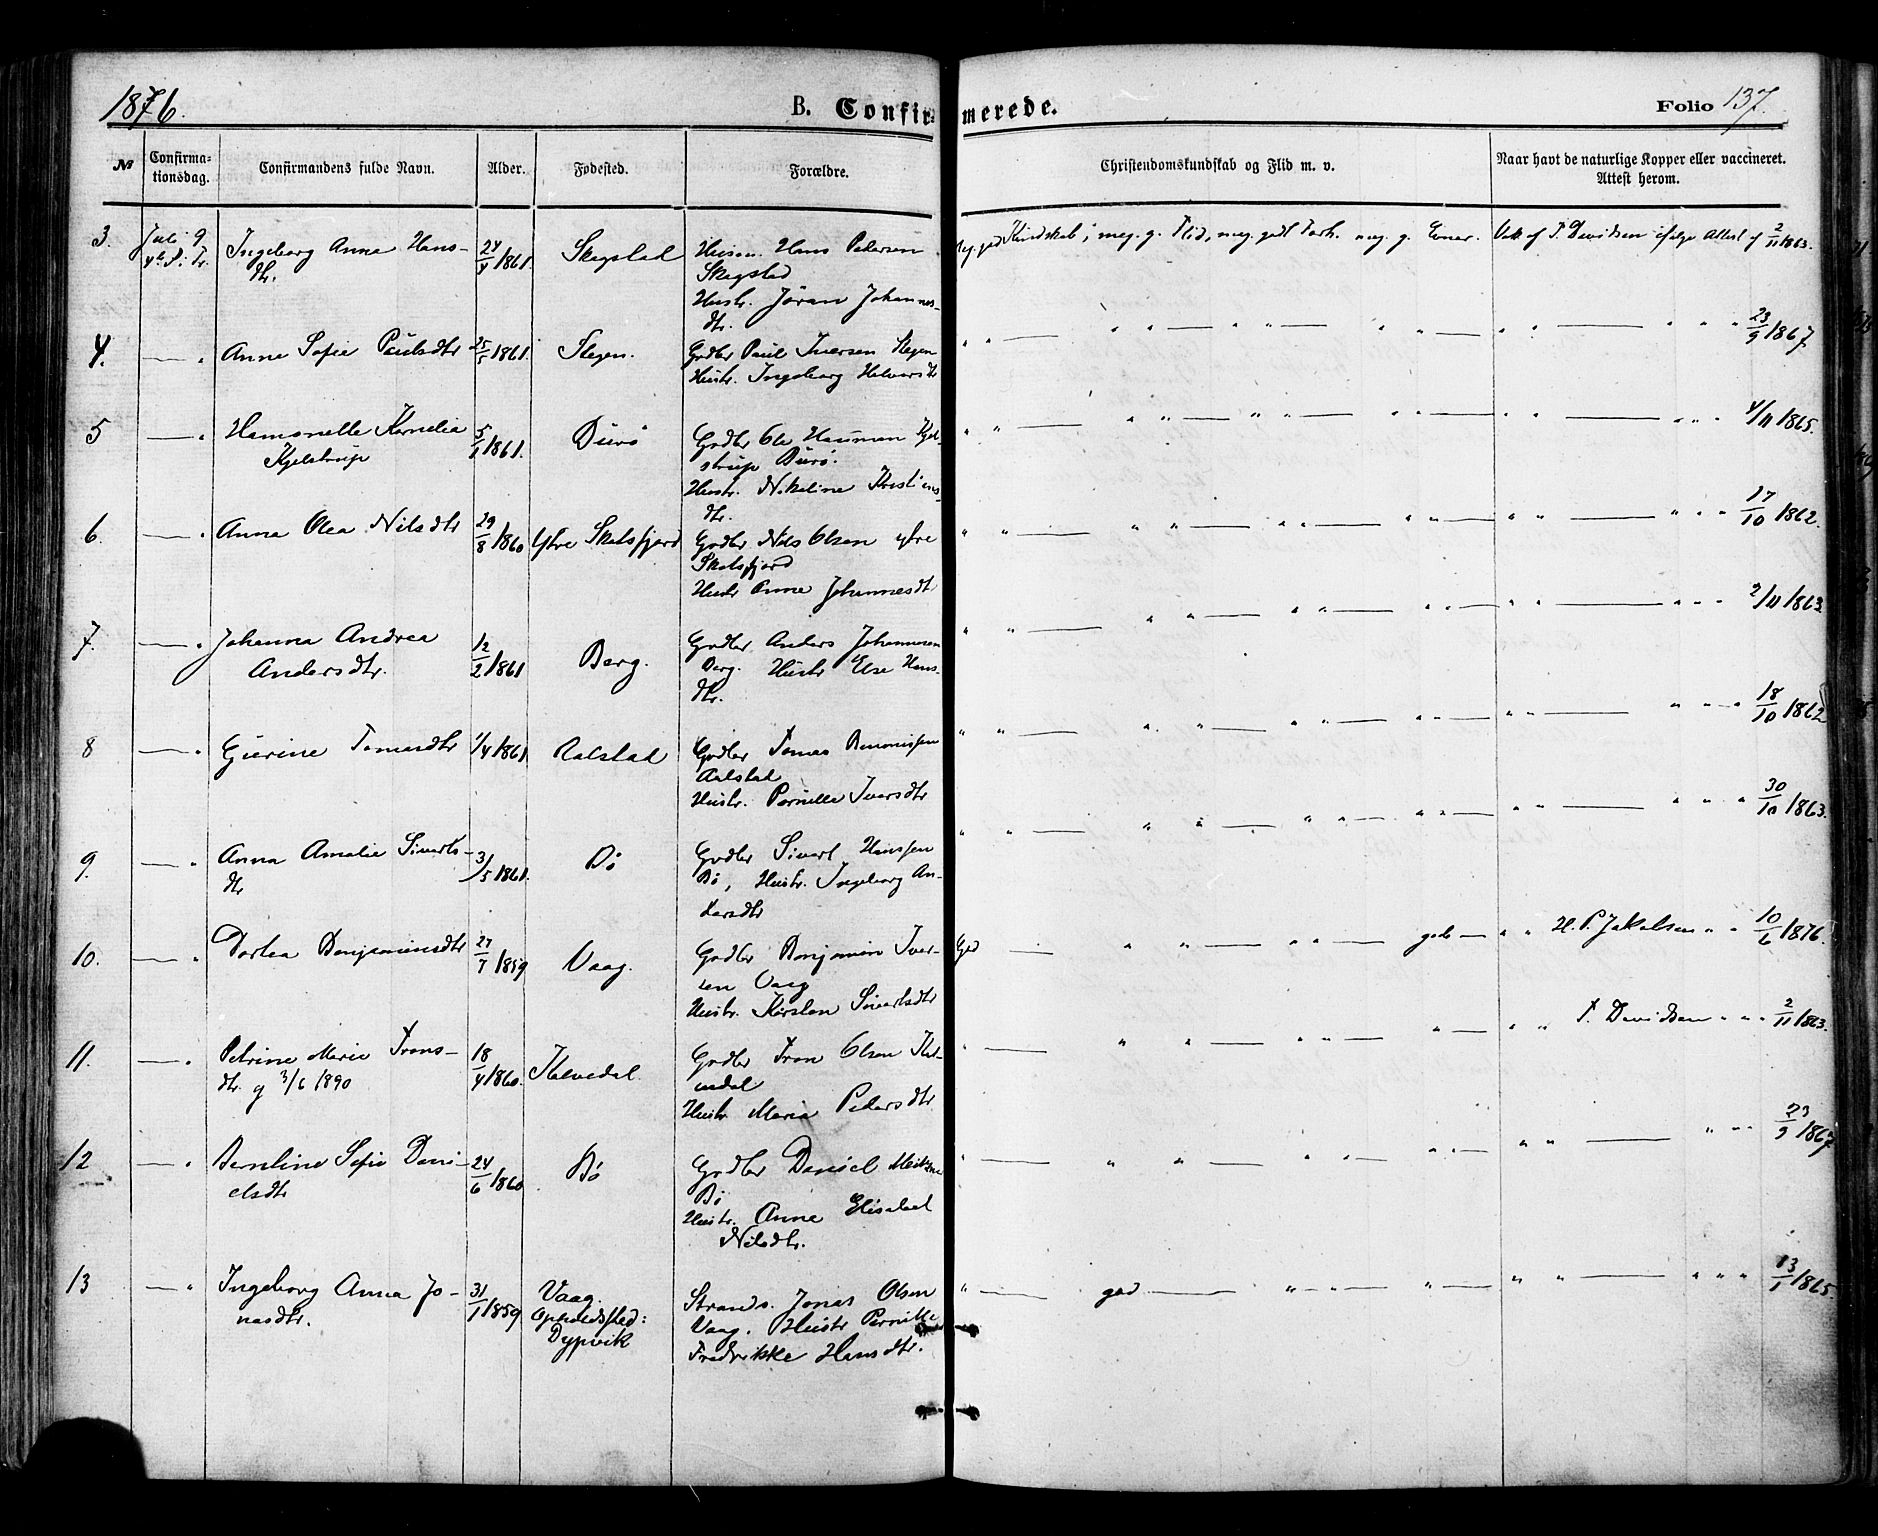 1876.
B. Confir-
merede.
Folio 137.
№
Confirma-
tionsdag.
Confirmandens fulde Navn.
Alder.
Fødested.
Forældre.
Christendomskundskab og Flid m. v.
Naar havt de naturlige Kopper eller vaccineret.
Attest herom.
3. Juli 9 Ingeborg Anna Hans- 24/4 1861. Skagstad Husm. Hans Petersen
4de S. Tr. dtr. Skagstad
Hustr. Jøran Johannes-
dtr.
Meg. god Kundskab, meg. g. Flid, meg. godt Forh. meg. g. Evner. Vak. af T. Davidsen ifølge Attest af 2/11 1863.
4. — " Anne Sofie Paulsdtr 25/5 1861. Stegen. Grdbr Paul Iversen Stegen
Hustr. Ingeborg Halvorsdtr
" " — " " — " " — " " — " " — " " " 23/9 1867
5 — " Hamonette Kornelia 5/1 1861. Burø Grdbr Ole Hauman Kjel-
Kjelstrup strup Burø.
Hustr. Nikoline Kristians-
dtr.
" " — " " — " " — " " — " " — " " " 4/11 1865.
6. — " Anna Olea Nilsdtr 29/8 1860 Ytre Skotsfjord Grdbr Nils Olsen ytre
Skotsfjord
Hustr Anne Johannesdtr
" " — " " — " " — " " — " " — " " " 17/10 1862.
7. — " Johanna Andrea 12/2 1861 Berg. Grdbr Anders Johannesen
Andersdtr. Berg. Hustr Else Hans-
dtr.
" " — " " — " " — " " — " " — " " " 2/11 1863
8 — " Gurine Tomasdtr 1/4 1861 Aalstad Grdbr Tomas Benonissen
Aalstad
Hustr. Pernille Iversdtr
" " — " " — " " — " " — " " — " " " 18/10 1862
9. — " Anna Amalie Siverts- 3/5 1861. Bø Grdbr Sivert Hanssen
dtr Bø, Hustr. Ingeborg An-
dersdtr
" " — " " — " " — " " — " " — " " " 30/10 1863.
10. — " Dortea Benjaminsdtr 27/7 1859 Vaag. Grdbr Benjamin Iver-
sen Vaag
Hustr. Kirsten Sivertsdtr
God — " " — " " — gode — " " H. P. Jakobsen " " 10/6 1876.
11. — " Petrine Marie Trons- 18/4 1860. Kalvedal Grdbr Tron Olsen Kal-
dtr. g 3/6 1890 vedal
Hustr Maria Pedersdtr
" — " " — " " — " — " " T. Davidsen " " " 2/11 1863.
12 — " Berntine Sofie Dani- 24/6 1860 Bø Grdbr Daniel
elsdtr Bø
Hustr. Anne Elisabet
Nilsdtr.
" — " " — " " — " " — " " — " " " 23/9 1867
13 — " Ingeborg Anna Jo- 31/1 1859 Vaag. Strands. Jonas Olsen
nasdtr. Opholdssted: Vaag. Hustr Pernille
Dypvik Fredrikke Hansdtr.
" — god — " " — " — " " — " " " 13/1 1865.